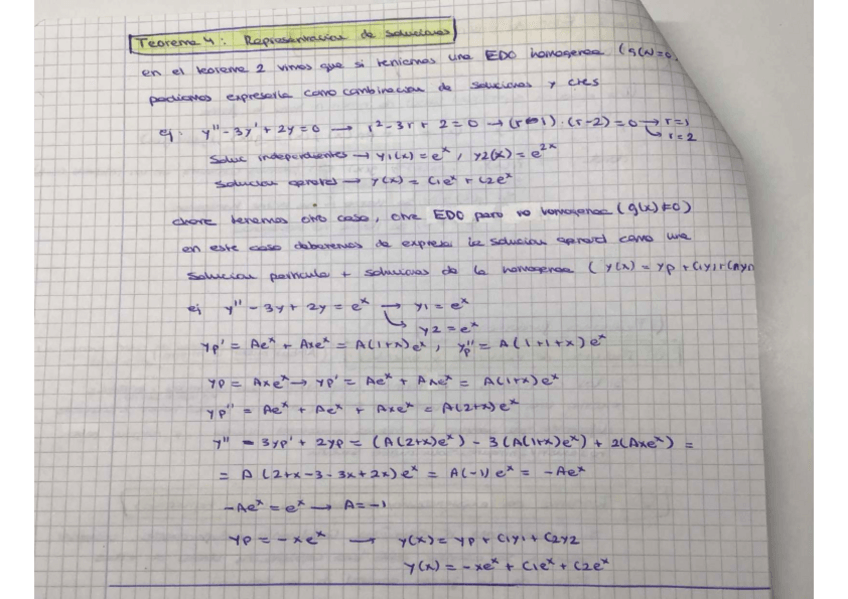 Teorema 4: Representacion de soluciones
en el teorema 2 vimos que si teniamos una EDO homogenea (g(x)=0,
podiamos expresarla como combinacion de soluciones y ctes
ej. y'' - 3y' + 2y = 0 → r² - 3r + 2 = 0 → (r-1)·(r-2) = 0 → r=1
↳ r=2
Soluc independientes → y1(x) = eˣ, y2(x) = e²ˣ
Solucion general → y(x) = C1eˣ + C2eˣ
ahora tenemos otro caso, otra EDO pero no homogenea (g(x)≠0)
en este caso deberemos de expresar la solucion general como una
Solucion particular + soluciones de la homogenea (y(x) = yp + C1y1 + Cnyn
ej y'' - 3y + 2y = eˣ → y1 = eˣ
↳ y2 = eˣ
yp' = Aeˣ + Axeˣ = A(1+x)eˣ, yp'' = A(1+1+x)eˣ
yp = Axeˣ → yp' = Aeˣ + Axeˣ = A(1+x)eˣ
yp'' = Aeˣ + Aeˣ + Axeˣ = A(2+x)eˣ
y'' - 3yp' + 2yp = (A(2+x)eˣ) - 3(A(1+x)eˣ) + 2(Axeˣ) =
= A(2+x-3-3x+2x)eˣ = A(-1)eˣ = -Aeˣ
-Aeˣ = eˣ → A=-1
yp = -xeˣ → y(x) = yp + C1y1 + C2y2
y(x) = -xeˣ + C1eˣ + C2eˣ